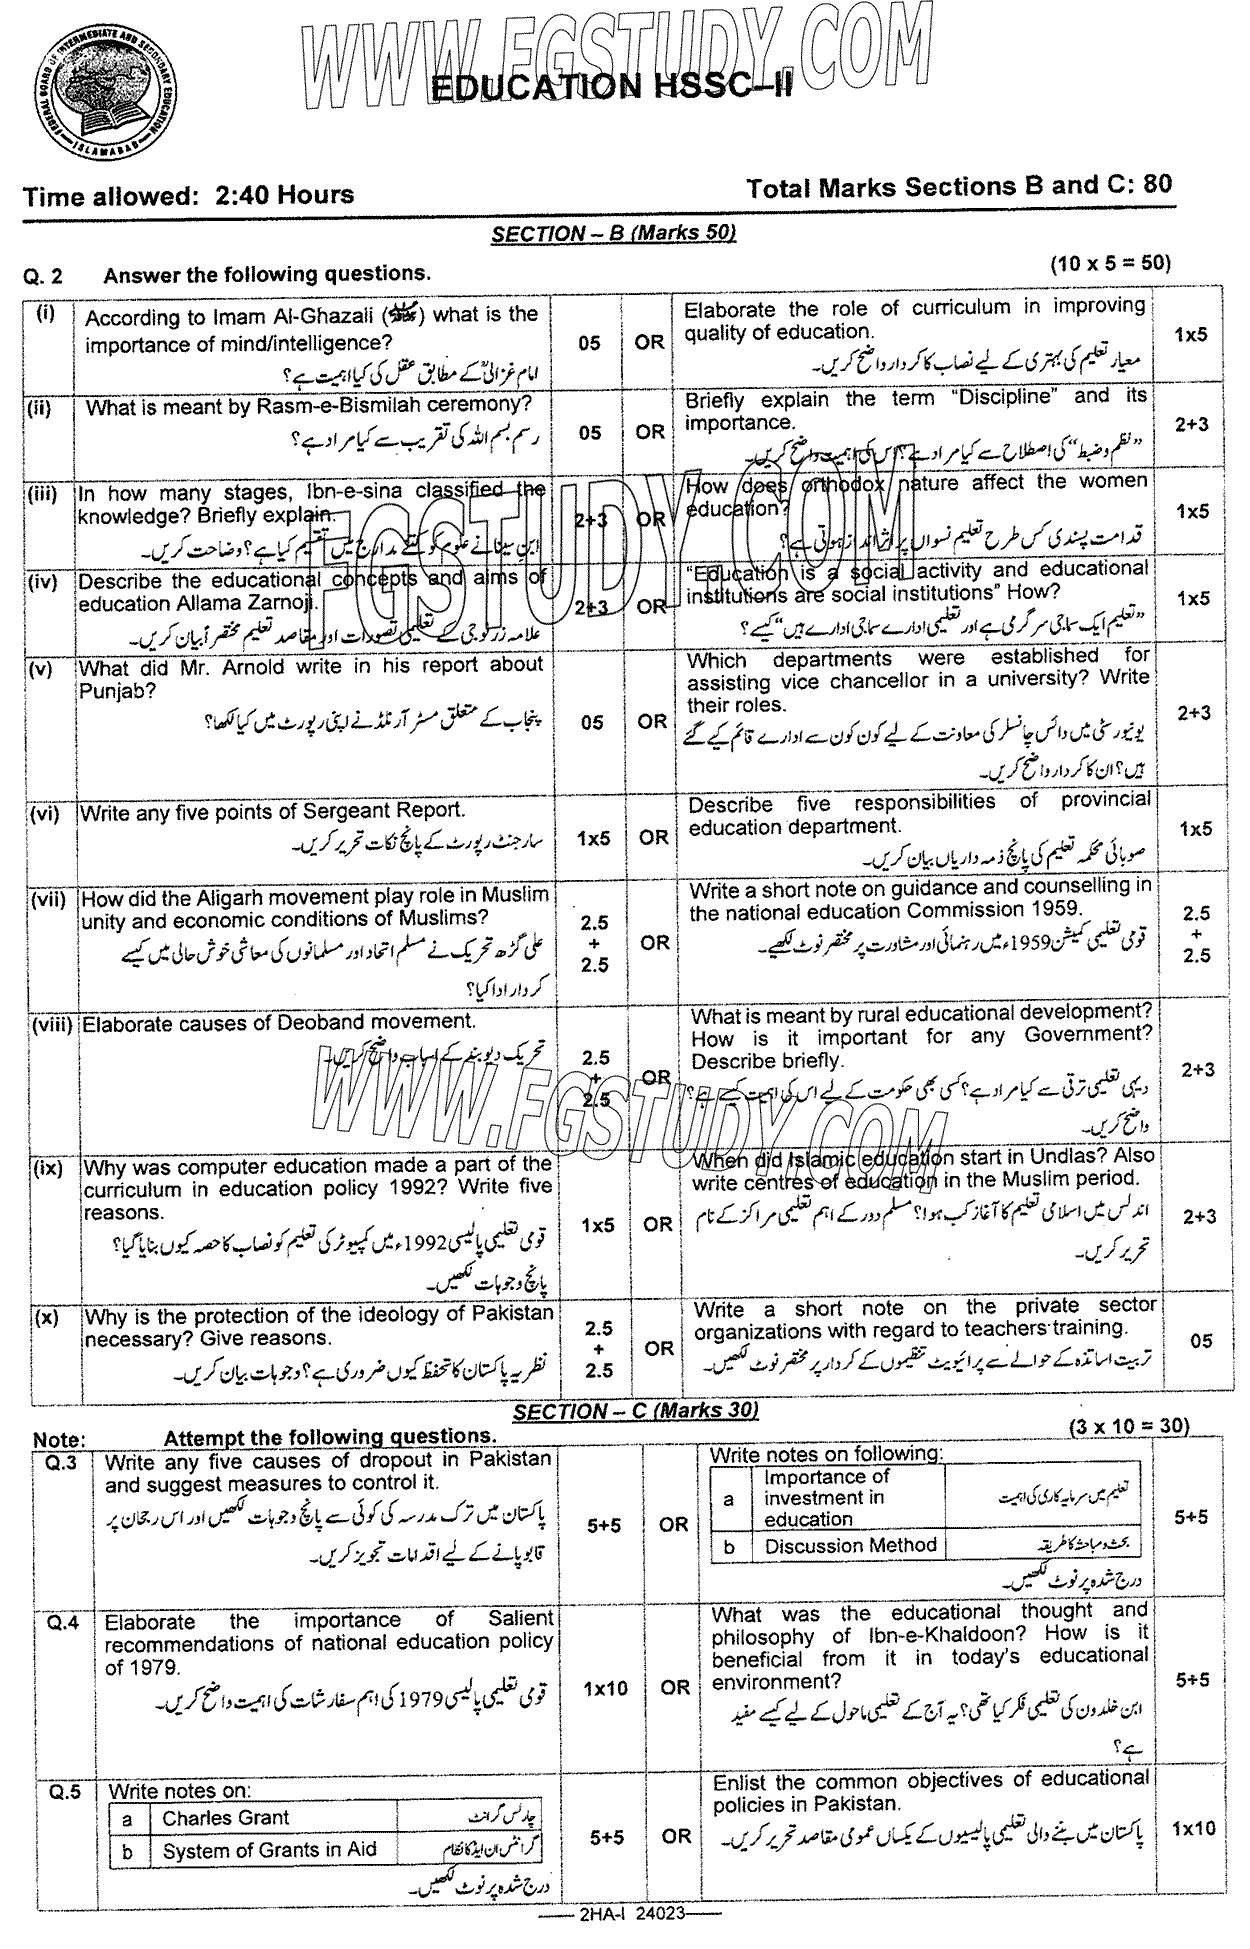 WWW.FGSTUDY.COM
FEDERAL BOARD OF INTERMEDIATE AND SECONDARY EDUCATION
ISLAMABAD
EDUCATION HSSC–II
Time allowed: 2:40 Hours
Total Marks Sections B and C: 80
SECTION – B (Marks 50)
Q. 2 Answer the following questions.
(10 x 5 = 50)
(i)
According to Imam Al-Ghazali (رحمۃ اللہ علیہ) what is the
importance of mind/intelligence?
امام غزالیؒ کے مطابق عقل کی کیا اہمیت ہے؟
05
OR
Elaborate the role of curriculum in improving
quality of education.
معیار تعلیم کی بہتری کے لیے نصاب کا کردار واضح کریں۔
1x5
(ii)
What is meant by Rasm-e-Bismilah ceremony?
رسم بسم اللہ کی تقریب سے کیا مراد ہے؟
05
OR
Briefly explain the term “Discipline” and its
importance.
”نظم وضبط“ کی اصطلاح سے کیا مراد ہے؟ اس کی اہمیت واضح کریں۔
2+3
(iii)
In how many stages, Ibn-e-sina classified the
knowledge? Briefly explain.
ابن سینا نے علوم کو کتنے مدارج میں تقسیم کیا ہے؟ وضاحت کریں۔
2+3
OR
How does orthodox nature affect the women
education?
قدامت پسندی کس طرح تعلیم نسواں پر اثر انداز ہوتی ہے؟
1x5
FGSTUDY.COM
(iv)
Describe the educational concepts and aims of
education Allama Zarnoji.
علامہ زرنوجی کے تعلیمی تصورات اور مقاصد تعلیم مختصر أبیان کریں۔
2+3
OR
“Education is a social activity and educational
institutions are social institutions” How?
”تعلیم ایک سماجی سرگرمی ہے اور تعلیمی ادارے سماجی ادارے ہیں“ کیسے؟
1x5
(v)
What did Mr. Arnold write in his report about
Punjab?
پنجاب کے متعلق مسٹر آرنلڈ نے اپنی رپورٹ میں کیا لکھا؟
05
OR
Which departments were established for
assisting vice chancellor in a university? Write
their roles.
یونیورسٹی میں وائس چانسلر کی معاونت کے لیے کون کون سے ادارے قائم کیے گئے
ہیں؟ ان کا کردار واضح کریں۔
2+3
(vi)
Write any five points of Sergeant Report.
سارجنٹ رپورٹ کے پانچ نکات تحریر کریں۔
1x5
OR
Describe five responsibilities of provincial
education department.
صوبائی محکمہ تعلیم کی پانچ ذمہ داریاں بیان کریں۔
1x5
(vii)
How did the Aligarh movement play role in Muslim
unity and economic conditions of Muslims?
علی گڑھ تحریک نے مسلم اتحاد اور مسلمانوں کی معاشی خوش حالی میں کیسے
کردار ادا کیا؟
2.5
+
2.5
OR
Write a short note on guidance and counselling in
the national education Commission 1959.
قومی تعلیمی کمیشن 1959ء میں رہنمائی اور مشاورت پر مختصر نوٹ لکھیے۔
2.5
+
2.5
(viii)
Elaborate causes of Deoband movement.
تحریک دیوبند کے اسباب واضح کریں۔
2.5
+
2.5
OR
What is meant by rural educational development?
How is it important for any Government?
Describe briefly.
دیہی تعلیمی ترقی سے کیا مراد ہے؟ کسی بھی حکومت کے لیے اس کی اہمیت کیسے ہے؟
واضح کریں۔
2+3
WWW.FGSTUDY.COM
(ix)
Why was computer education made a part of the
curriculum in education policy 1992? Write five
reasons.
قومی تعلیمی پالیسی 1992ء میں کمپیوٹر کی تعلیم کو نصاب کا حصہ کیوں بنایا گیا؟
پانچ وجوہات لکھیں۔
1x5
OR
When did Islamic education start in Undlas? Also
write centres of education in the Muslim period.
اندلس میں اسلامی تعلیم کا آغاز کب ہوا؟ مسلم دور کے اہم تعلیمی مراکز کے نام
تحریر کریں۔
2+3
(x)
Why is the protection of the ideology of Pakistan
necessary? Give reasons.
نظریہ پاکستان کا تحفظ کیوں ضروری ہے؟ وجوہات بیان کریں۔
2.5
+
2.5
OR
Write a short note on the private sector
organizations with regard to teachers training.
تربیت اساتذہ کے حوالے سے پرائیویٹ تنظیموں کے کردار پر مختصر نوٹ لکھیں۔
05
SECTION – C (Marks 30)
Note: Attempt the following questions.
(3 x 10 = 30)
Q.3
Write any five causes of dropout in Pakistan
and suggest measures to control it.
پاکستان میں ترک مدرسہ کی کوئی سے پانچ وجوہات لکھیں اور اس رجحان پر
قابو پانے کے لیے اقدامات تجویز کریں۔
5+5
OR
Write notes on following:
a
Importance of
investment in
education
تعلیم میں سرمایہ کاری کی اہمیت
b
Discussion Method
بحث و مباحثہ کا طریقہ
درج شدہ پر نوٹ لکھیں۔
5+5
Q.4
Elaborate the importance of Salient
recommendations of national education policy
of 1979.
قومی تعلیمی پالیسی 1979 کی اہم سفارشات کی اہمیت واضح کریں۔
1x10
OR
What was the educational thought and
philosophy of Ibn-e-Khaldoon? How is it
beneficial from it in today's educational
environment?
ابن خلدون کی تعلیمی فکر کیا تھی؟ یہ آج کے تعلیمی ماحول کے لیے کیسے مفید
ہے؟
5+5
Q.5
Write notes on:
a
Charles Grant
چارلس گرانٹ
b
System of Grants in Aid
گرانٹس ان ایڈ کا نظام
درج شدہ پر نوٹ لکھیں۔
5+5
OR
Enlist the common objectives of educational
policies in Pakistan.
پاکستان میں بننے والی تعلیمی پالیسیوں کے یکساں عمومی مقاصد تحریر کریں۔
1x10
—— 2HA-I 24023 ——